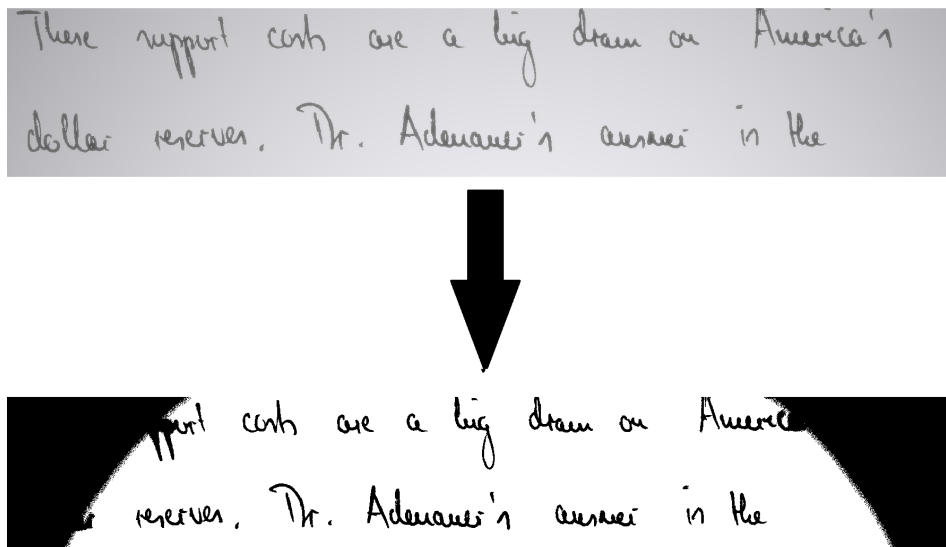 These support costs are a big drain on America's
dollar reserves. Dr. Adenauer's answer is the
support costs are a big drain on America
reserves. Dr. Adenauer's answer is the